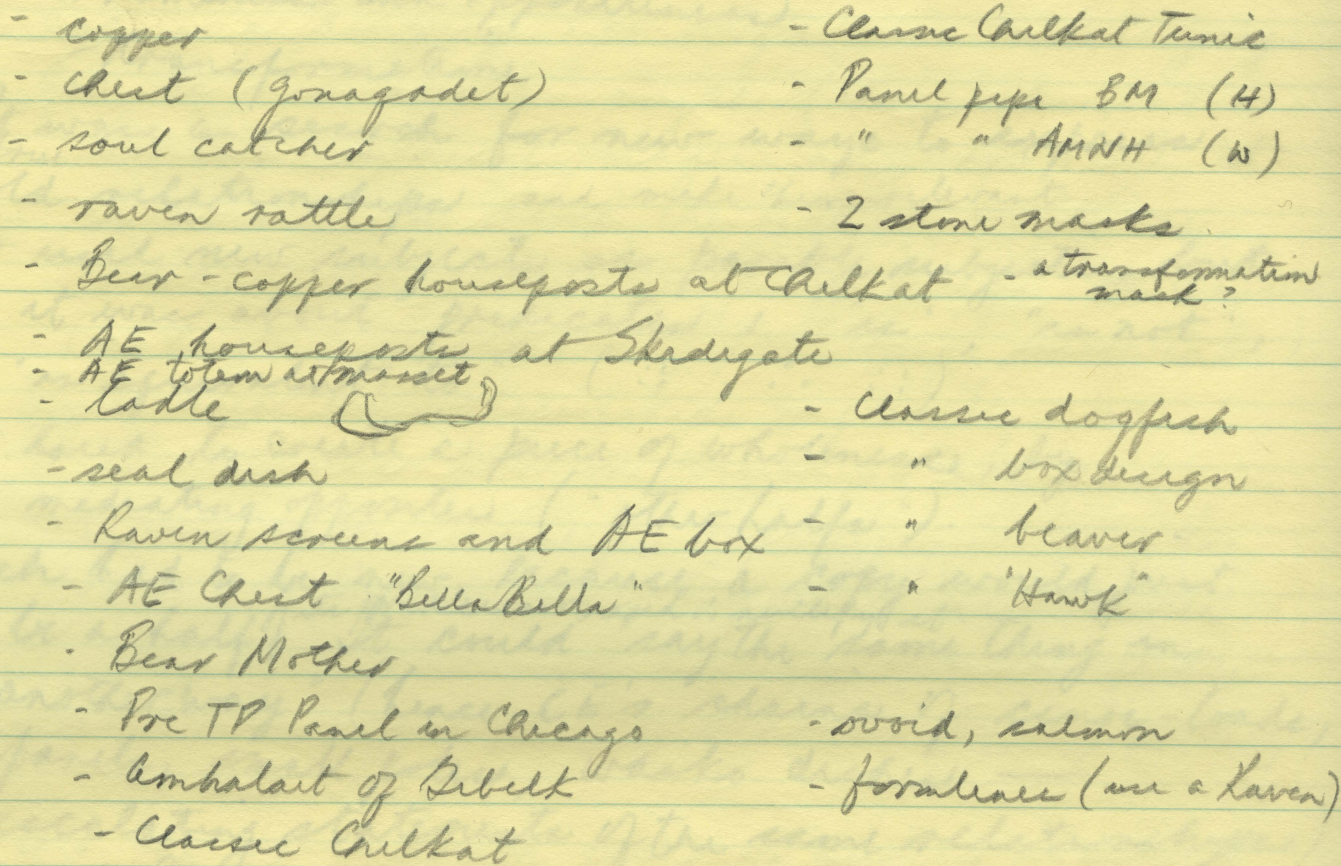 - copper
- chest (Gonaqadet)
- soul catcher
- raven rattle
- Bear - copper houseposts at Chilkat
- AE houseposts at Skidegate
- AE totem at Masset
- ladle
- seal dish
- Raven screens and AE box
- AE Chest "Bella Bella"
- Bear Mother
- Pre TP Panel in Chicago
- Amhalait of Gibelk
- Classic Chilkat
- Classic Chilkat Tunic
- Panel pipe BM (H)
- " " AMNH (W)
- 2 stone masks
- a transformation
mask?
- Classic dogfish
- " box design
- " beaver
- " "Hawk"
- ovoid, salmon
- formlines (use a Raven)